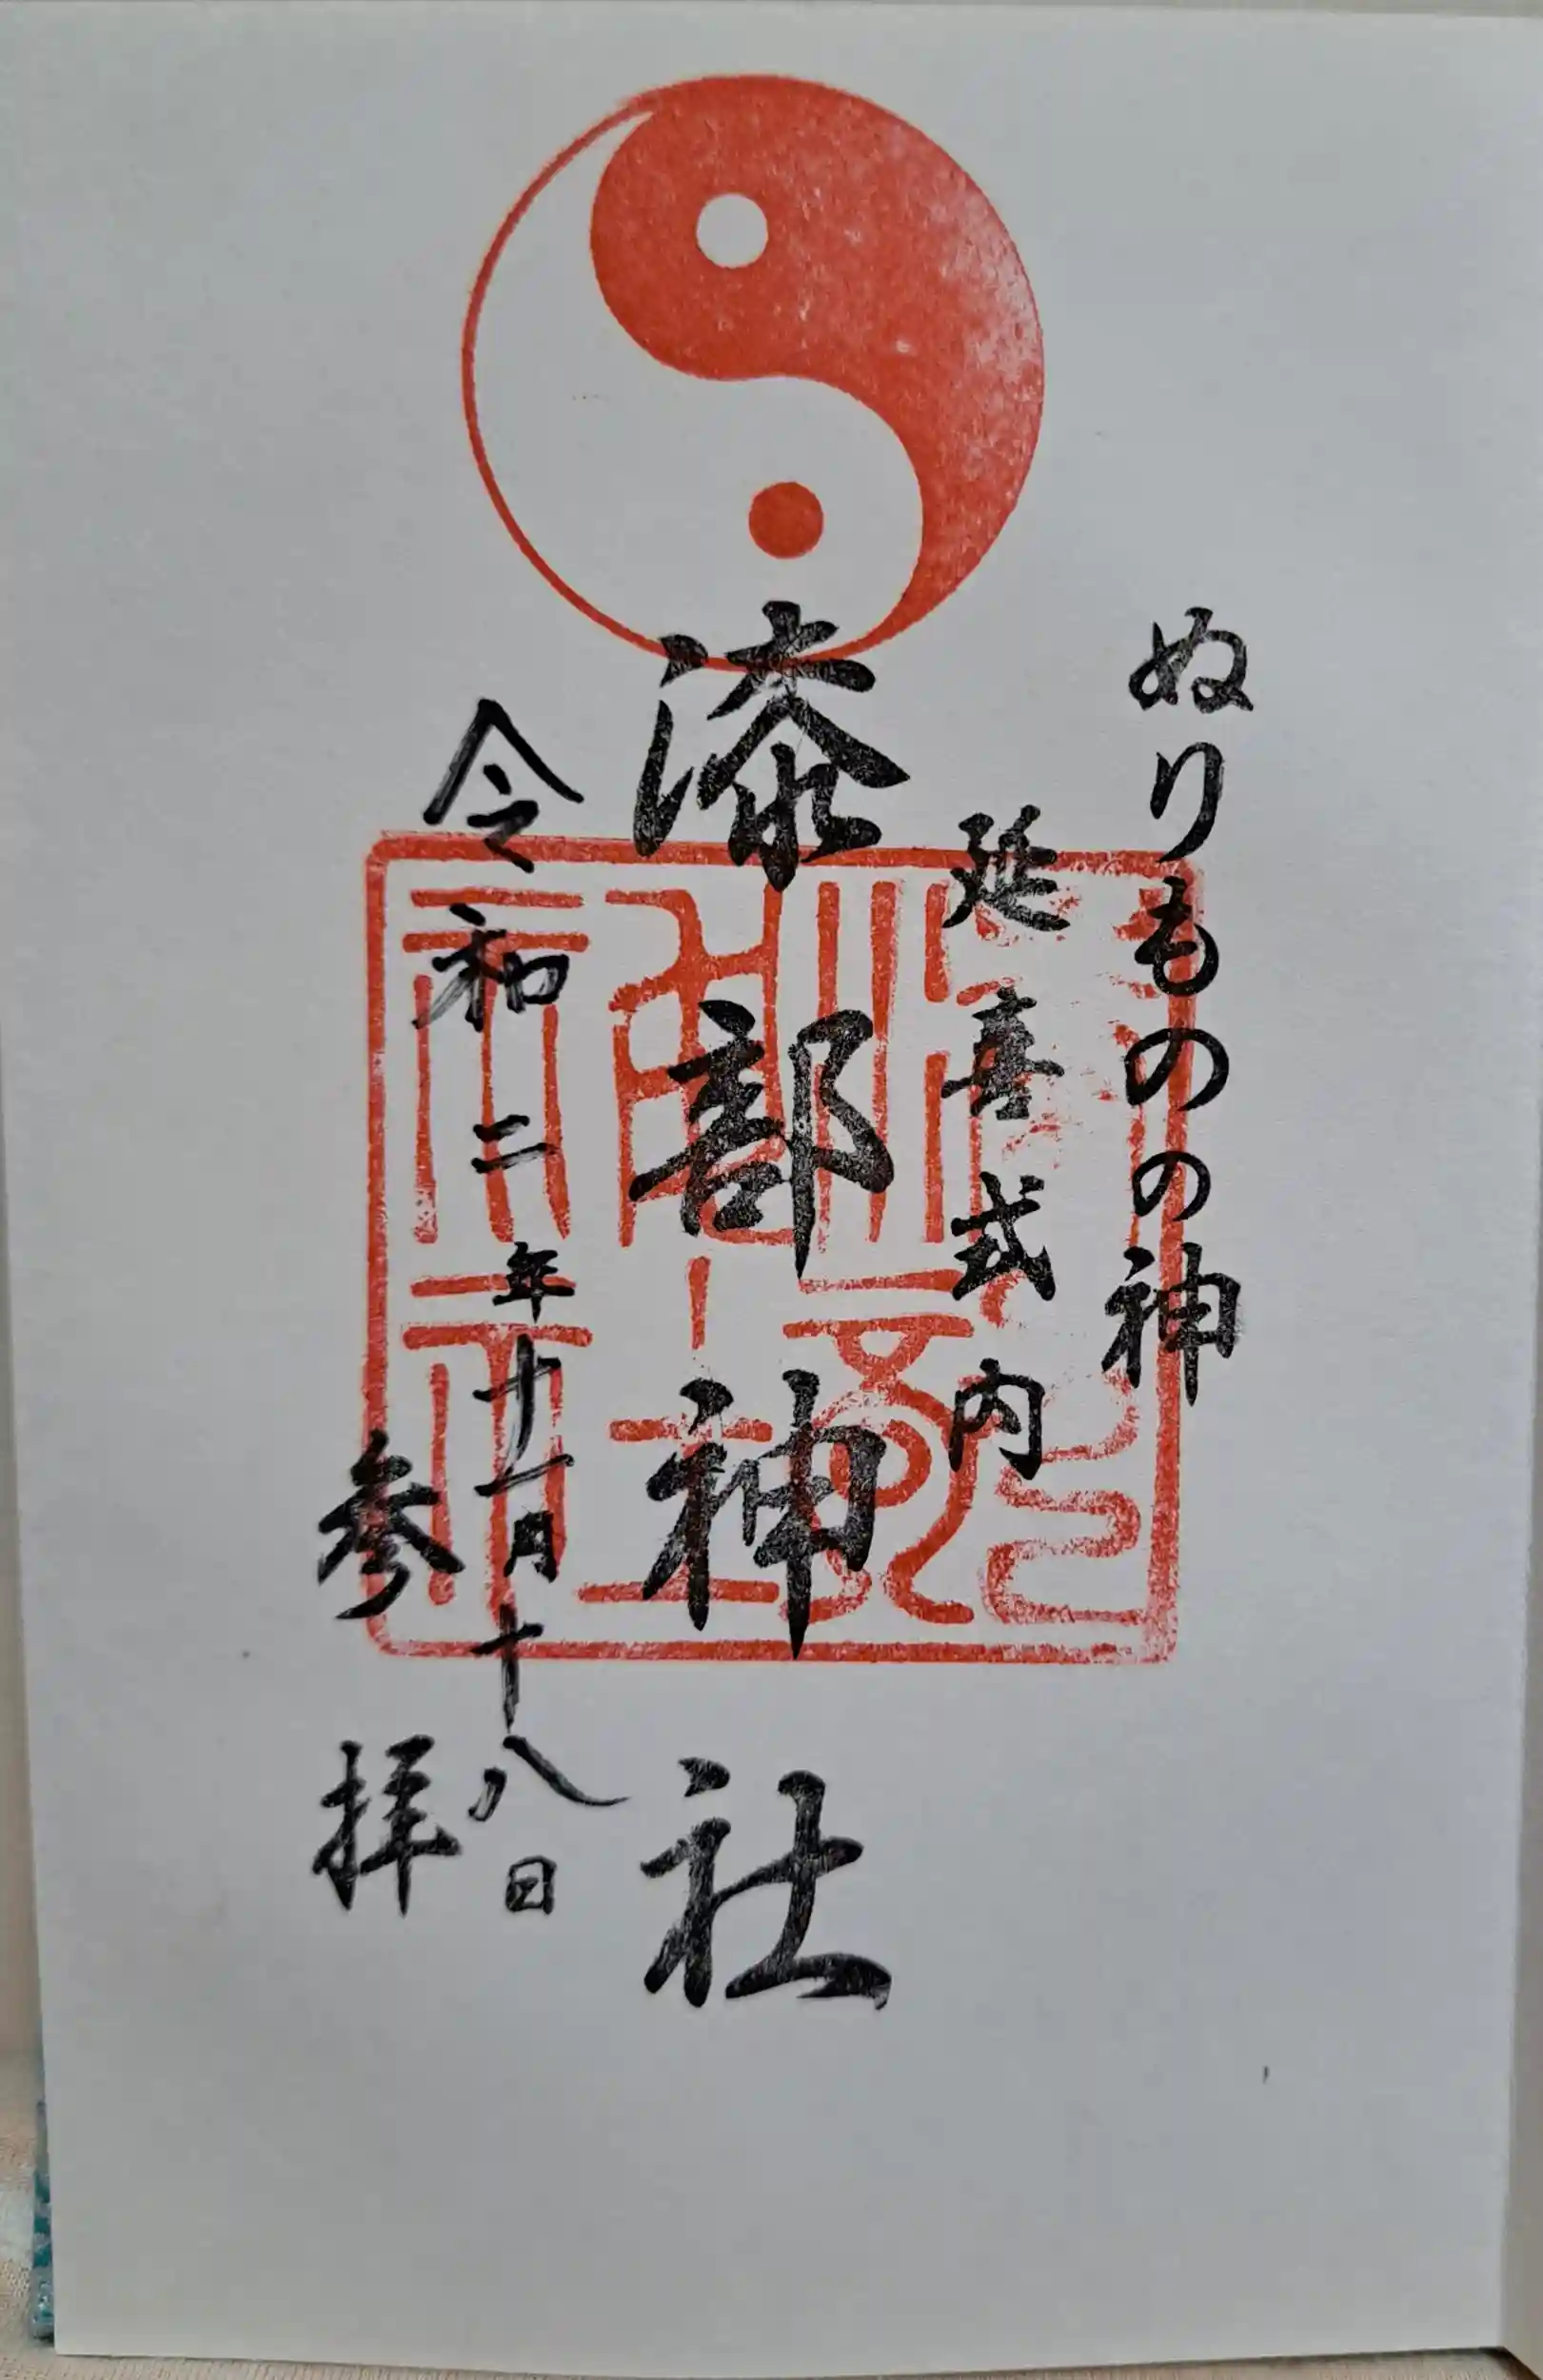 ぬりものの神
延喜式内
漆部神社
令和二年十一月十八日
参拝